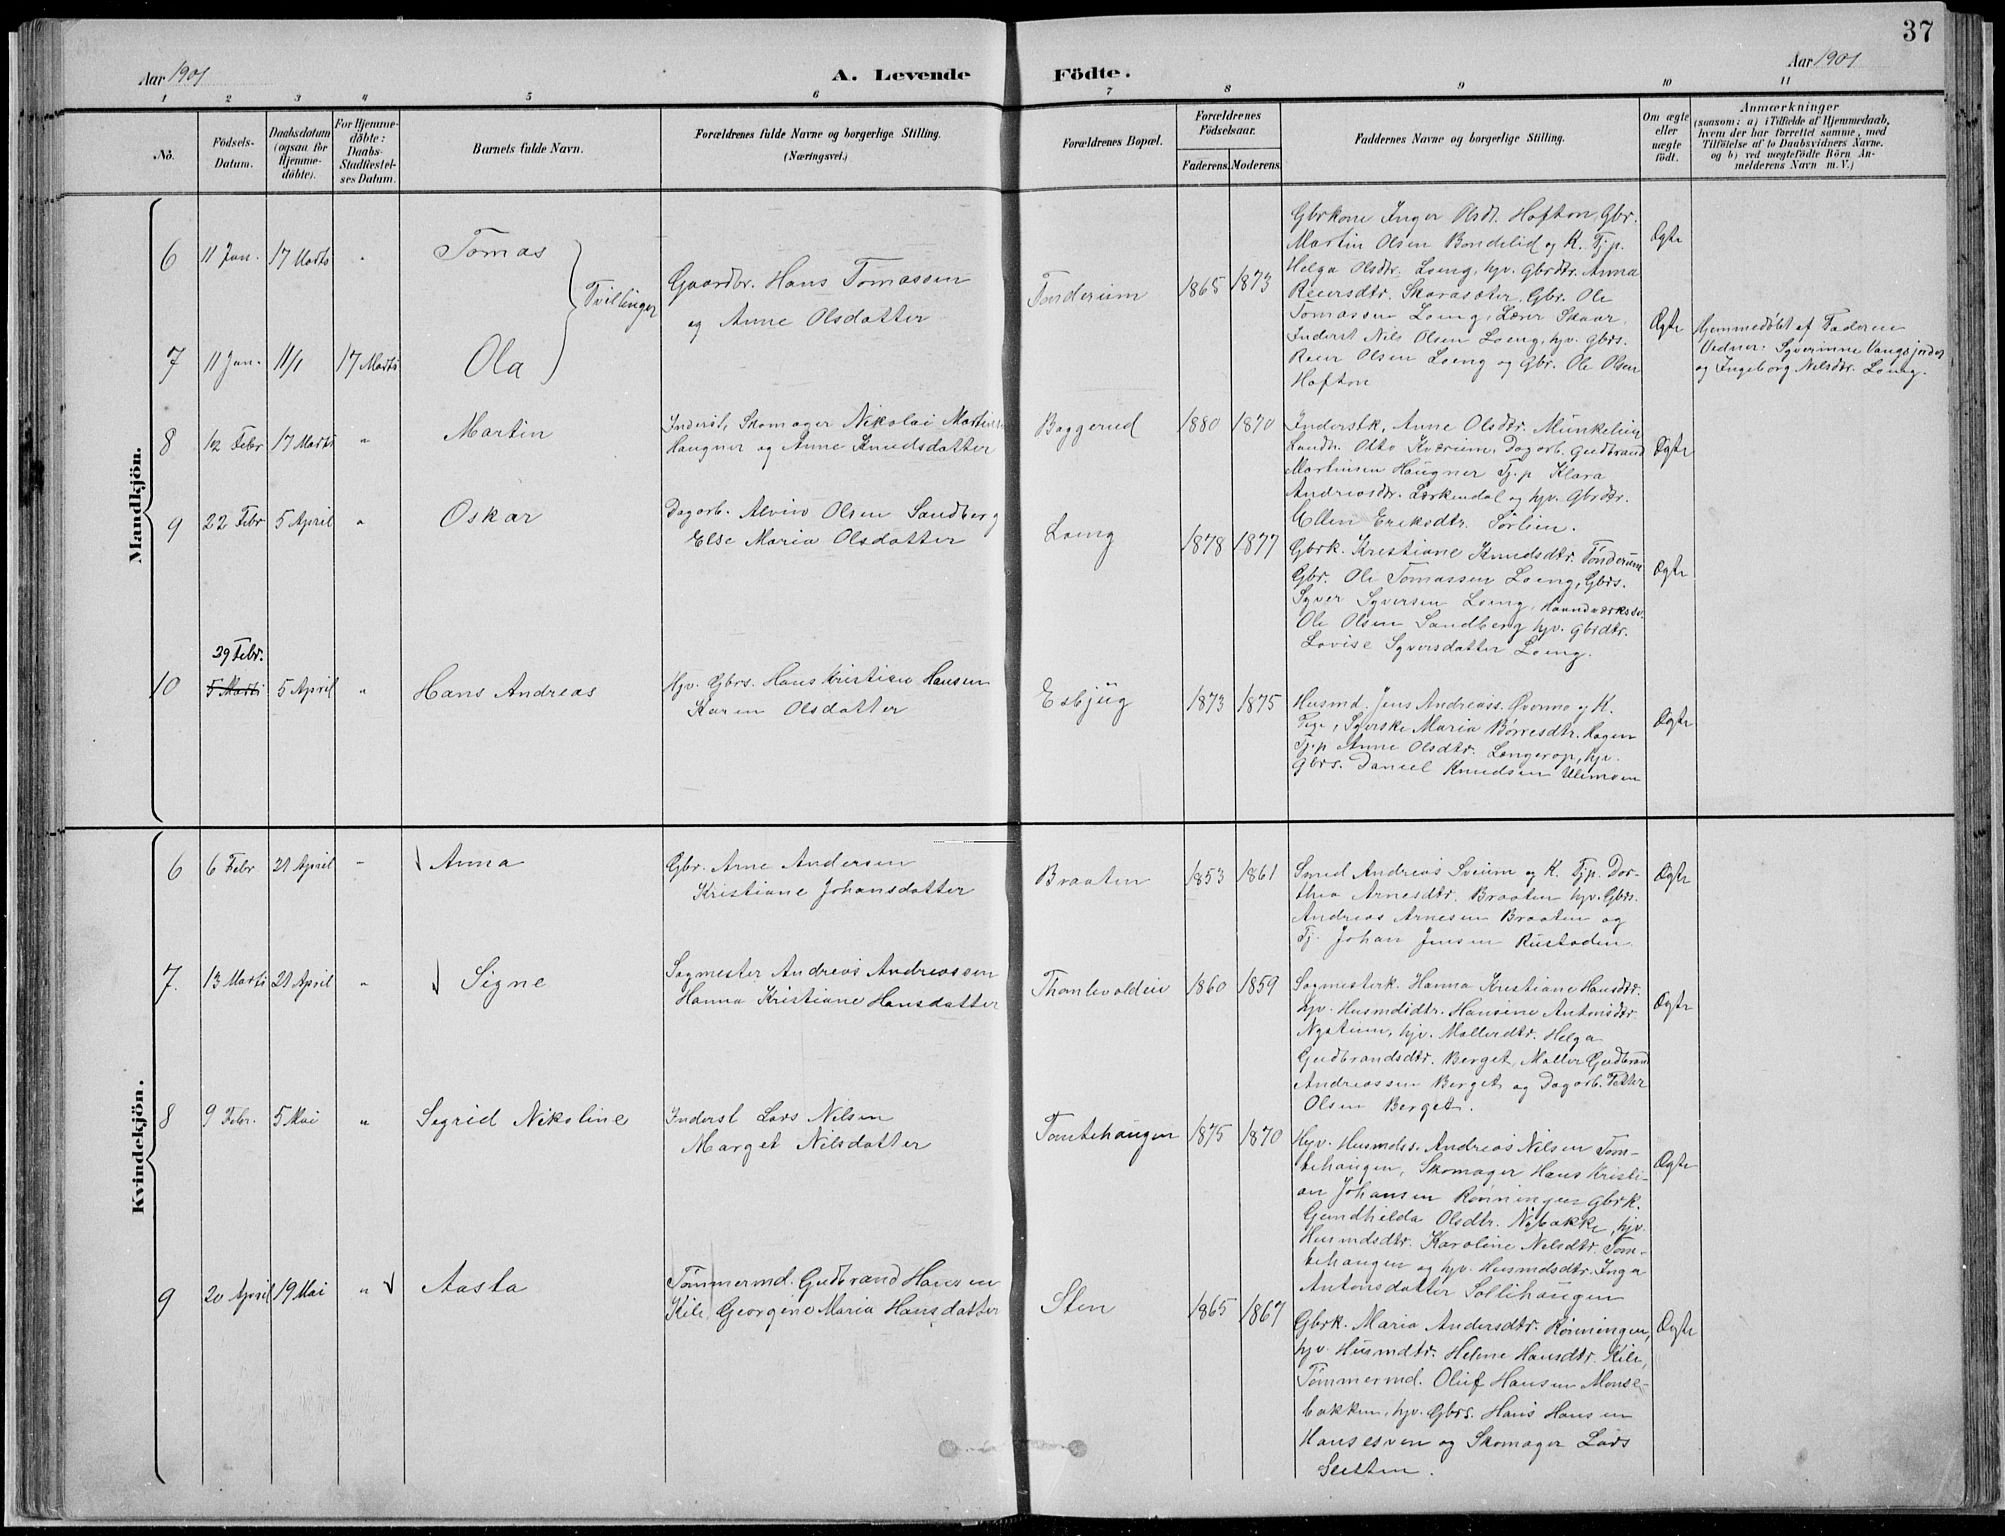 37
Aar 1901
A. Levende Födte.
Aar 1901
1 2 3 4 5 6 7 8 9 10 11
No.
Födsels-Datum.
Daabsdatum (ogsaa for Hjemmedöbte).
For Hjemmedöbte: Daabs-Stadfæstelses Datum.
Barnets fulde Navn.
Forældrenes fulde Navne og borgerlige Stilling.
(Næringsvei.)
Forældrenes Bopæl.
Forældrenes Födselsaar.
Faderens. Moderens.
Faddernes Navne og borgerlige Stilling.
Om ægte eller uægte födt.
Anmærkninger
(saasom: a) i Tilfælde af Hjemmedaab,
hvem der har forrettet samme, med
Tilföielse af to Daabsvidners Navne.
og b) ved uægtefödte Börn An-
melderens Navn m. V.)
Mandkjön.
6 11 Jan. 17 Marts " Tomas
Tvillinger
Gaardbr. Hans Tomassen
og Anne Olsdatter
Tønderum 1865 1873
Gbrkone Inger Olsdt. Hofton, Gbr.
Martin Olsen Bondelid og K. Tj.p.
Helga Olsdtr. Loeng, hjv. Gbrdtr. Anna
Reiersdtr. Skarasæter, Gbr. Ole
Tomassen Loeng, Lærer Skaar,
Inderst Nils Olsen Loeng, hjv. Gbrs.
Reier Olsen Loeng og Gbr. Ole Olsen
Hofton
Ægte
7 11 Jan. 11/1 17 Marts Ola
Ægte
Hjemmedøbt af Faderen
Vidner: Syverinne Vangsjordet
og Ingeborg Nilsdtr. Loeng.
8 12 Febr 17 Marts " Martin
Inderst, Skomager Nikolai Martinsen
Haugner og Anne Knudsdatter
Baggerud 1880 1870
Inderstk. Anne Olsdtr. Munkelien
Landh. Otto Kværum, Dagarb. Gudbrand
Martinsen Haugner Tj.p Klara
Andreasdtr. Lerkendal og hjv. Gbrdtr.
Ellen Eriksdtr. Sørlien.
Ægte
9 22 Febr 5 April " Oskar
Dagarb. Alvin Olsen Sandberg
Else Maria Olsdatter
Loeng 1878 1877
Gbrk. Kristiane Knudsdtr. Tønderum
Gbr. Ole Tomassen Loeng, Gbrs.
Syver Syversen Loeng, Haandværkssv.
Ole Olsen Sandberg hjv. Gbrdtr.
Lovise Syversdatter Loeng.
Ægte
29 Febr.
10 5 Marts 5 April " Hans Andreas
Hjv. Gbrs. Hans Kristian Hansen
Karen Olsdatter
Esbjüg 1873 1875
Husmd. Jens Andreass. Øvermo og K.
Pige, Syerske Maria Børresdtr. Hagen
Tj.p Anne Olsdtr. Langerop, hjv.
Gbrs. Daniel Knudsen Ulimoen
Ægte
Kvindekjön.
6 6 Febr 21 April " Anna
Gbr. Arne Andersen
Kristiane Johansdatter
Braaten 1853 1861
Smed Andreas Sveum og K. Tj.p. Dor-
thea Arnesdtr. Braaten hjv. Gbrs.
Andreas Arnesen Braaten og
Tj. Johan Jensen Rustaden.
Ægte
7. 13 Marts 21 April " Signe
Sagmester Andreas Andreassen
Hanna Kristiane Hansdatter
Thonlevoldeie 1860 1859
Sagmesterk. Hanna Kristiane Hansdtr.
hjv. Husmdsdtr. Hansine Antonsdtr.
Nystuen, hjv. Møllerdtr. Helga
Gudbrandsdtr. Berget, Møller Gudbrand
Andreassen Berget og Dagarb. Petter
Olsen Berget.
Ægte
8 9 Febr. 5 Mai " Sigrid Nikoline
Inderst Lars Nilsen
Marget Nilsdatter
Tomtehaugen 1875 1870
Hjv. Husmdss. Andreas Nilsen Tom-
tehaugen, Skomager Hans Kristi-
an Johansen Rønningen Gbrk.
Gundhilda Olsdtr. Nybakke, hjv.
Husmdsdtr. Karoline Nilsdtr. Tom-
tehaugen og hjv. Husmdsdtr. Inga
Antonsdatter Sollihaugen
Ægte
9 20 April 19 Mai " Aasta
Tømmermd. Gudbrand Hansen
Kile Georgine Maria Hansdatter
Sten 1865 1867
Gbrk. Maria Andersdtr. Rønningen,
hjv. Husmdtr. Helene Hansdtr. Kile,
Tømmermd. Oluf Hansen Monse-
bakken, hjv. Gbrs. Hans Hansen
Hansesven og Skomager Lars
Sletten.
Ægte